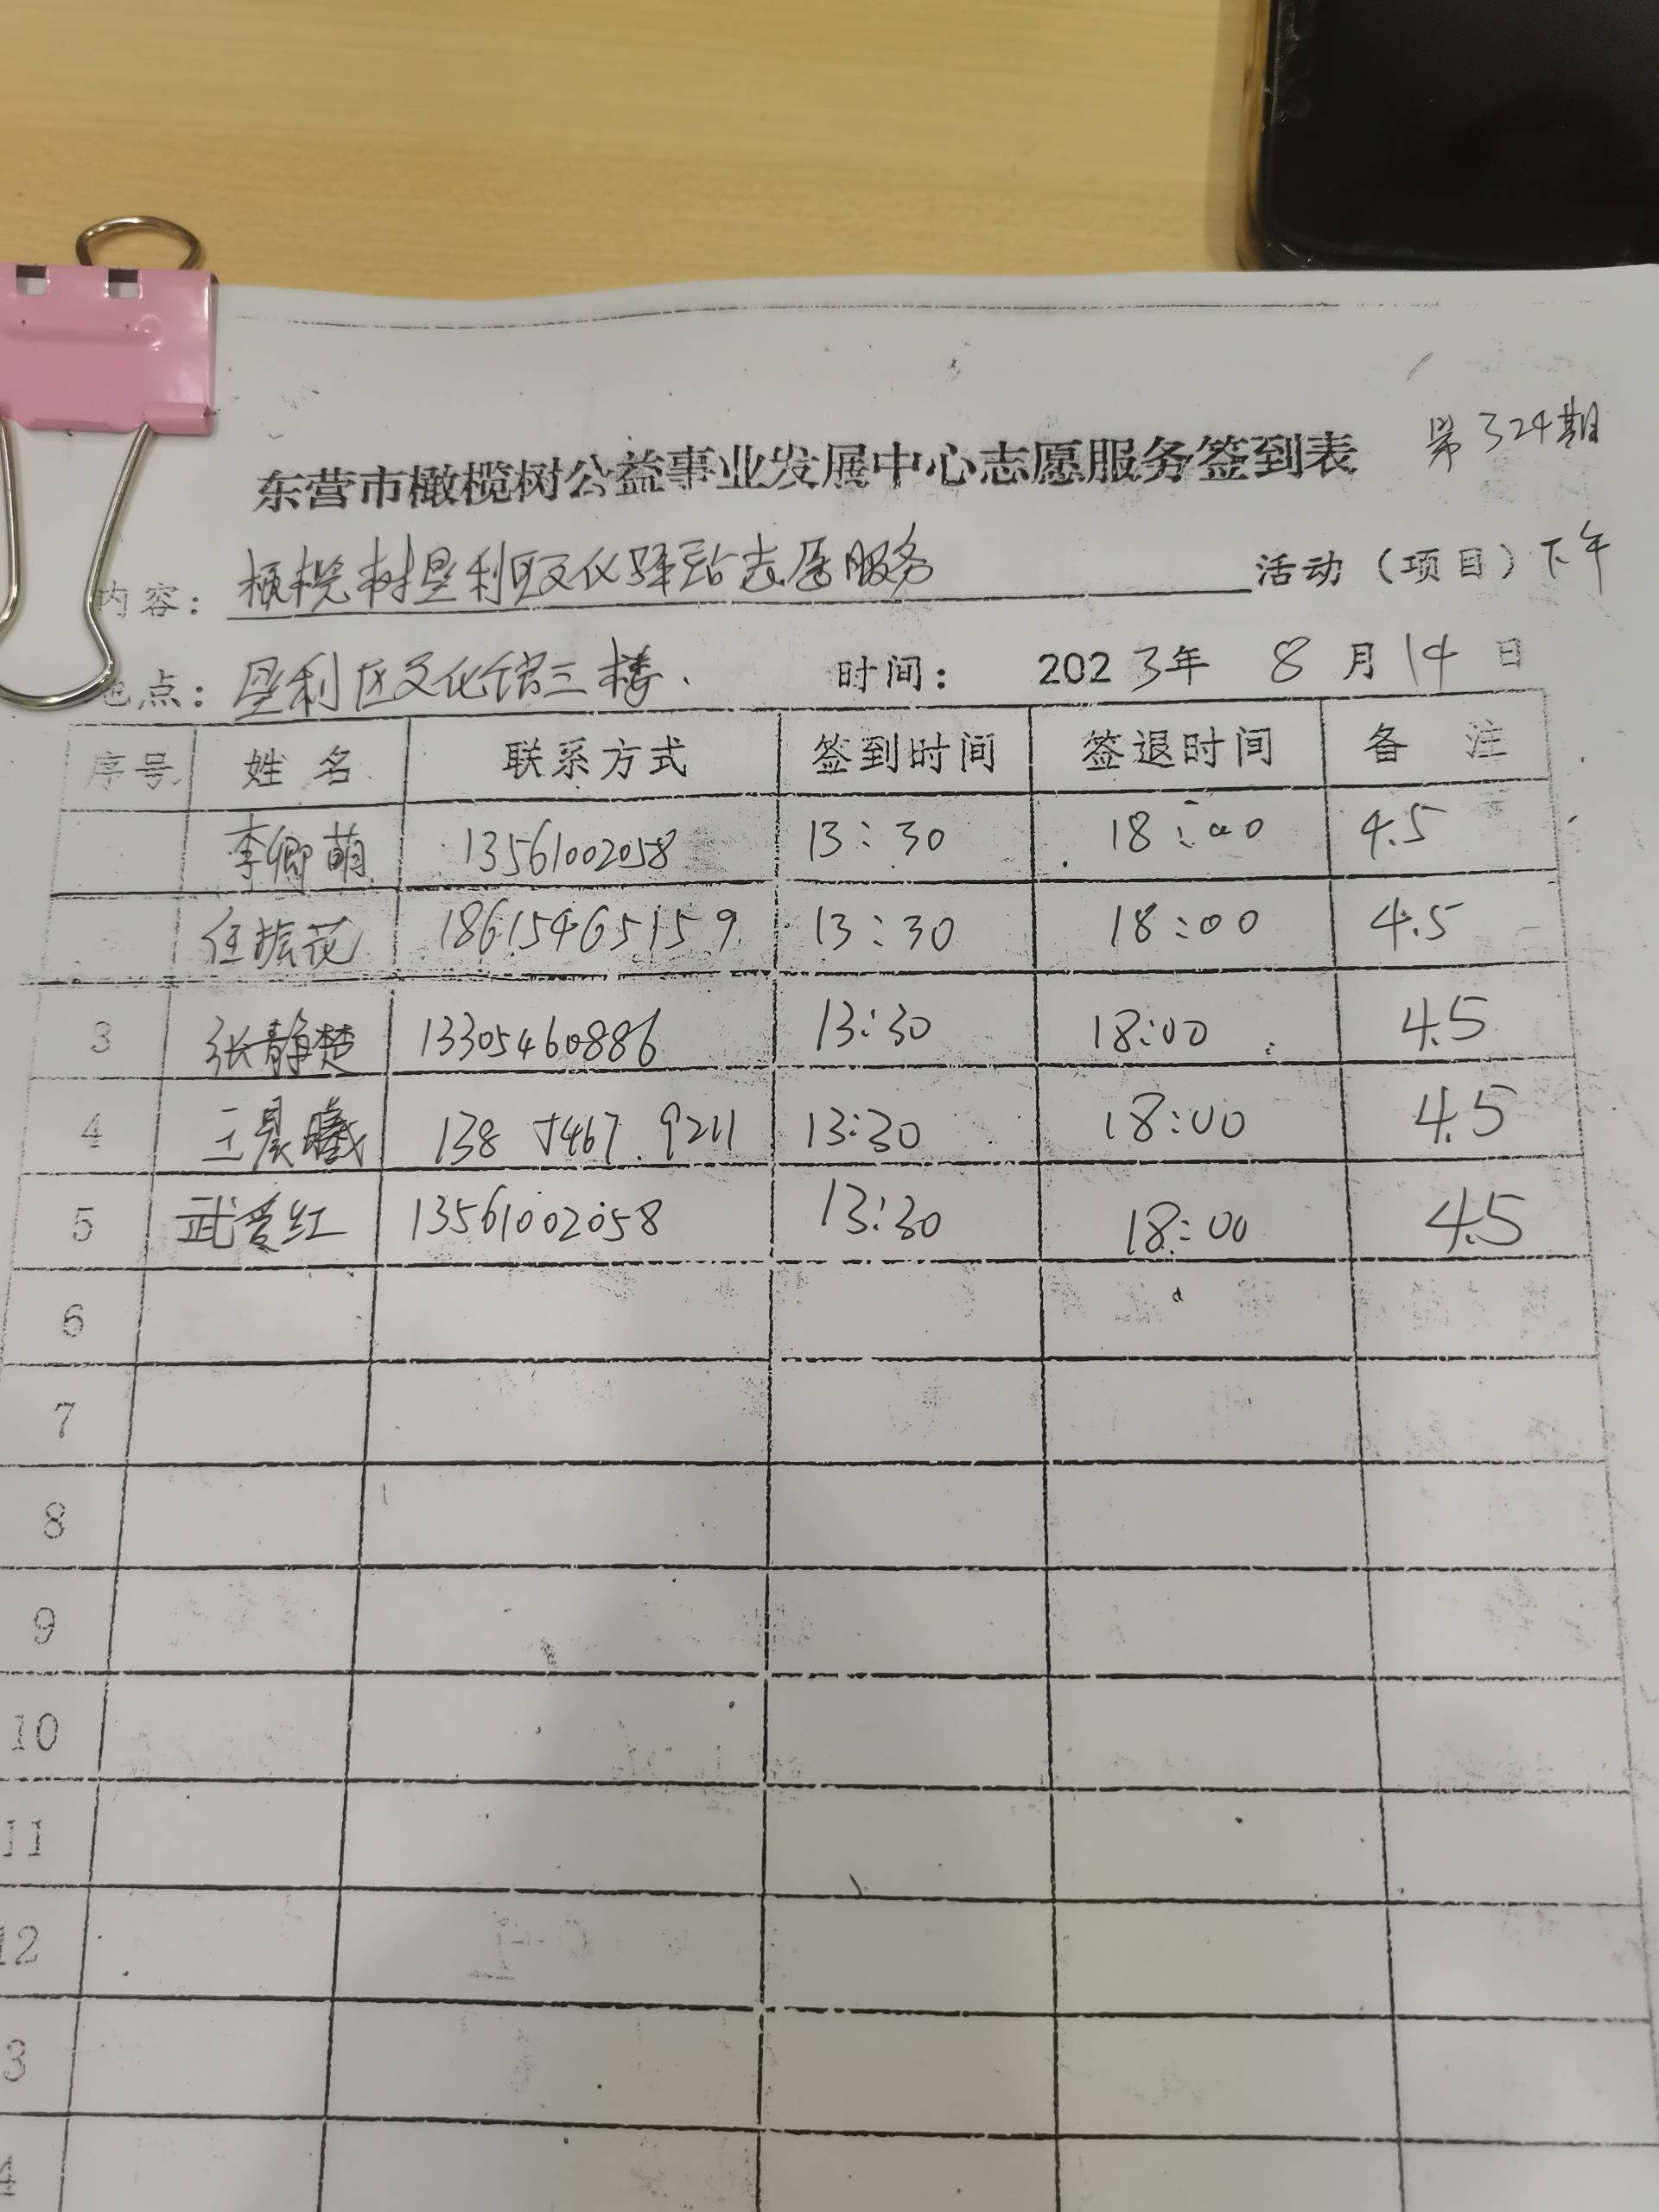 第324期
东营市橄榄树公益事业发展中心志愿服务签到表
内容：橄榄树垦利区文化驿站志愿服务 活动（项目）下午
地点：垦利区文化馆三楼. 时间： 2023年 8月14日
序号 姓名 联系方式 签到时间 签退时间 备注
李卿萌 13561002058 13:30 18:00 4.5
任振花 18615465159 13:30 18:00 4.5
3 张静楚 13305460886 13:30 18:00 4.5
4 王晨曦 138 5467 9211 13:30 18:00 4.5
5 武爱红 13561002058 13:30 18:00 4.5
6
7
8
9
10
11
12
3
4